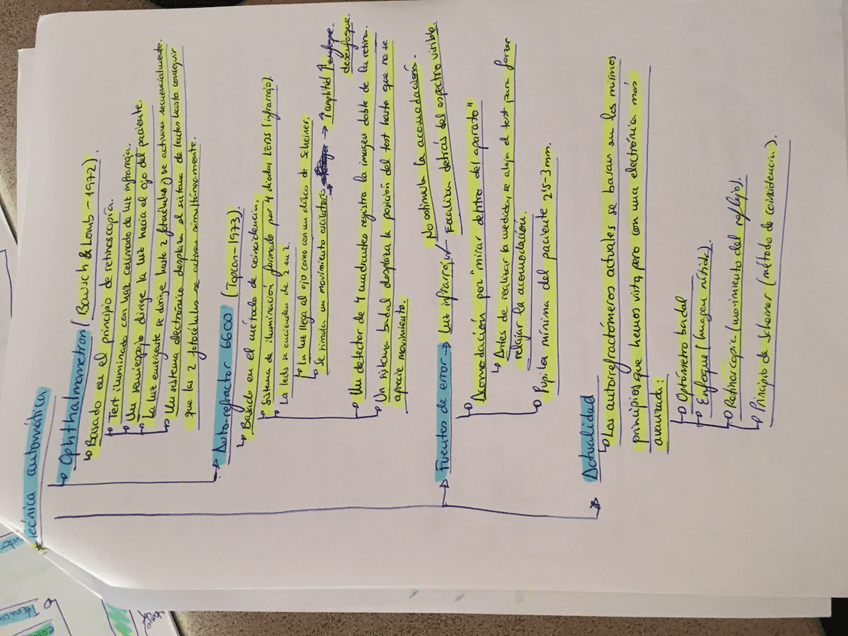 Técnica automática
Ophthalmometron (Bausch & Lomb - 1972)
Basado en el principio de retinoscopía.
Test iluminado con haz colimado de luz infrarroja.
Un semiespejo dirige la luz hacia el ojo del paciente
La luz emergente se dirige hasta 2 fotocélulas y se activan secuencialmente.
Un sistema electrónico desplaza el sistema de lentes hasta conseguir
que las 2 fotocélulas se activen simultáneamente.
Autorefractor 6600 (Topcon - 1973)
Basado en el método de coincidencia.
Sistema de iluminación formado por 4 diodos LEDS (infrarrojo).
La leds se encienden de 2 en 2.
La luz llega al ojo como con un disco de Scheiner.
Se simula un movimiento oscilatorio → ↑ amplitud ↑ enfoque
desenfoque
Un detector de 4 cuadrantes registra la imagen doble de la retina.
Un sistema badal desplaza la posición del test hasta que no se
aprecie movimiento.
Fuentes de error → Luz infrarroja
No estimula la acomodación.
Focaliza detrás del espectro visible.
Acomodación por "mirar dentro del aparato"
Antes de realizar la medida, se aleja el test para forzar
relajar la acomodación.
Pupila mínima del paciente 2'5-3mm.
Actualidad
Los autorefractómeros actuales se basan en los mismos
principios que hemos visto pero con una electrónica más
avanzada:
Optómetro badal
Enfoque (imagen nítida).
Retinoscopía (movimiento del reflejo).
Principio de Scheiner (método de coincidencia).